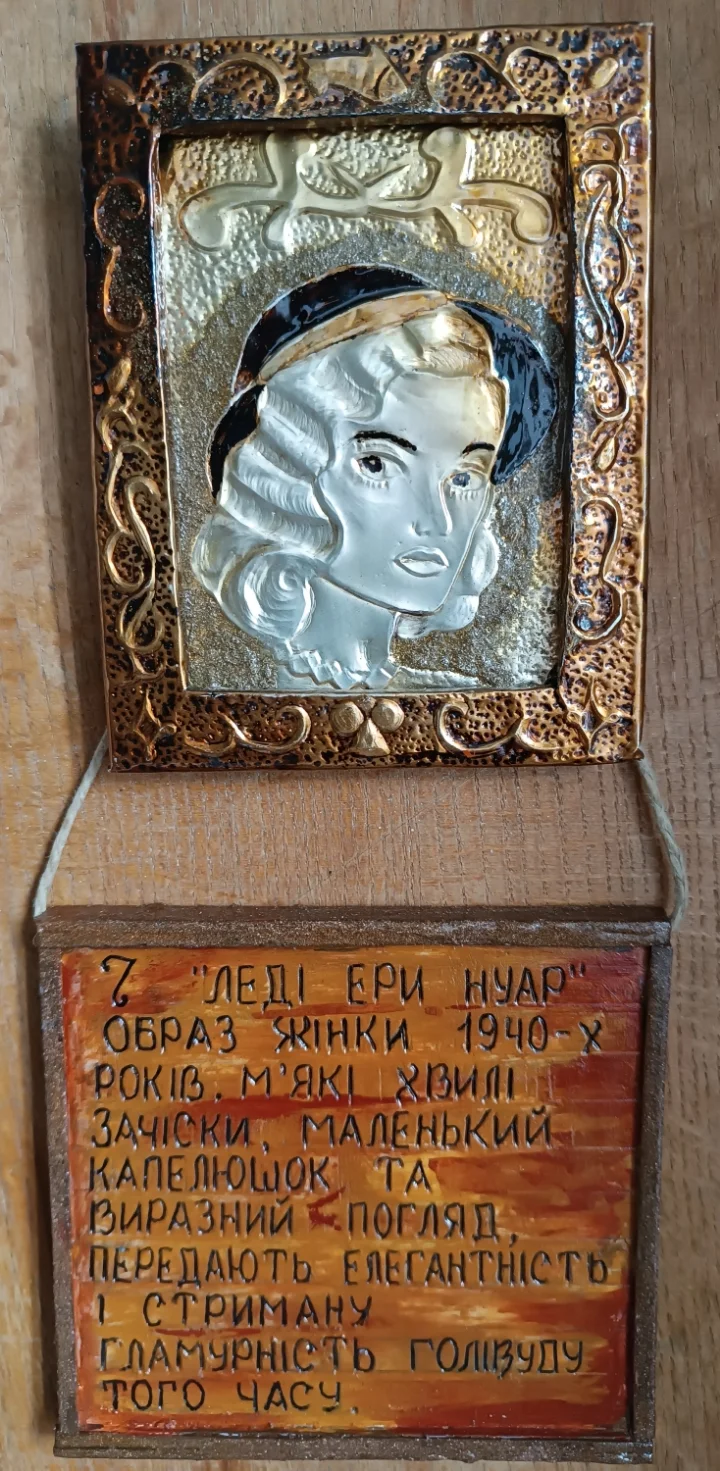 7 "ЛЕДІ ЕРИ НУАР"
ОБРАЗ ЖІНКИ 1940-Х
РОКІВ. М'ЯКІ ХВИЛІ
ЗАЧІСКИ, МАЛЕНЬКИЙ
КАПЕЛЮШОК ТА
ВИРАЗНИЙ ПОГЛЯД,
ПЕРЕДАЮТЬ ЕЛЕГАНТНІСТЬ
І СТРИМАНУ
ГЛАМУРНІСТЬ ГОЛІВУДУ
ТОГО ЧАСУ.